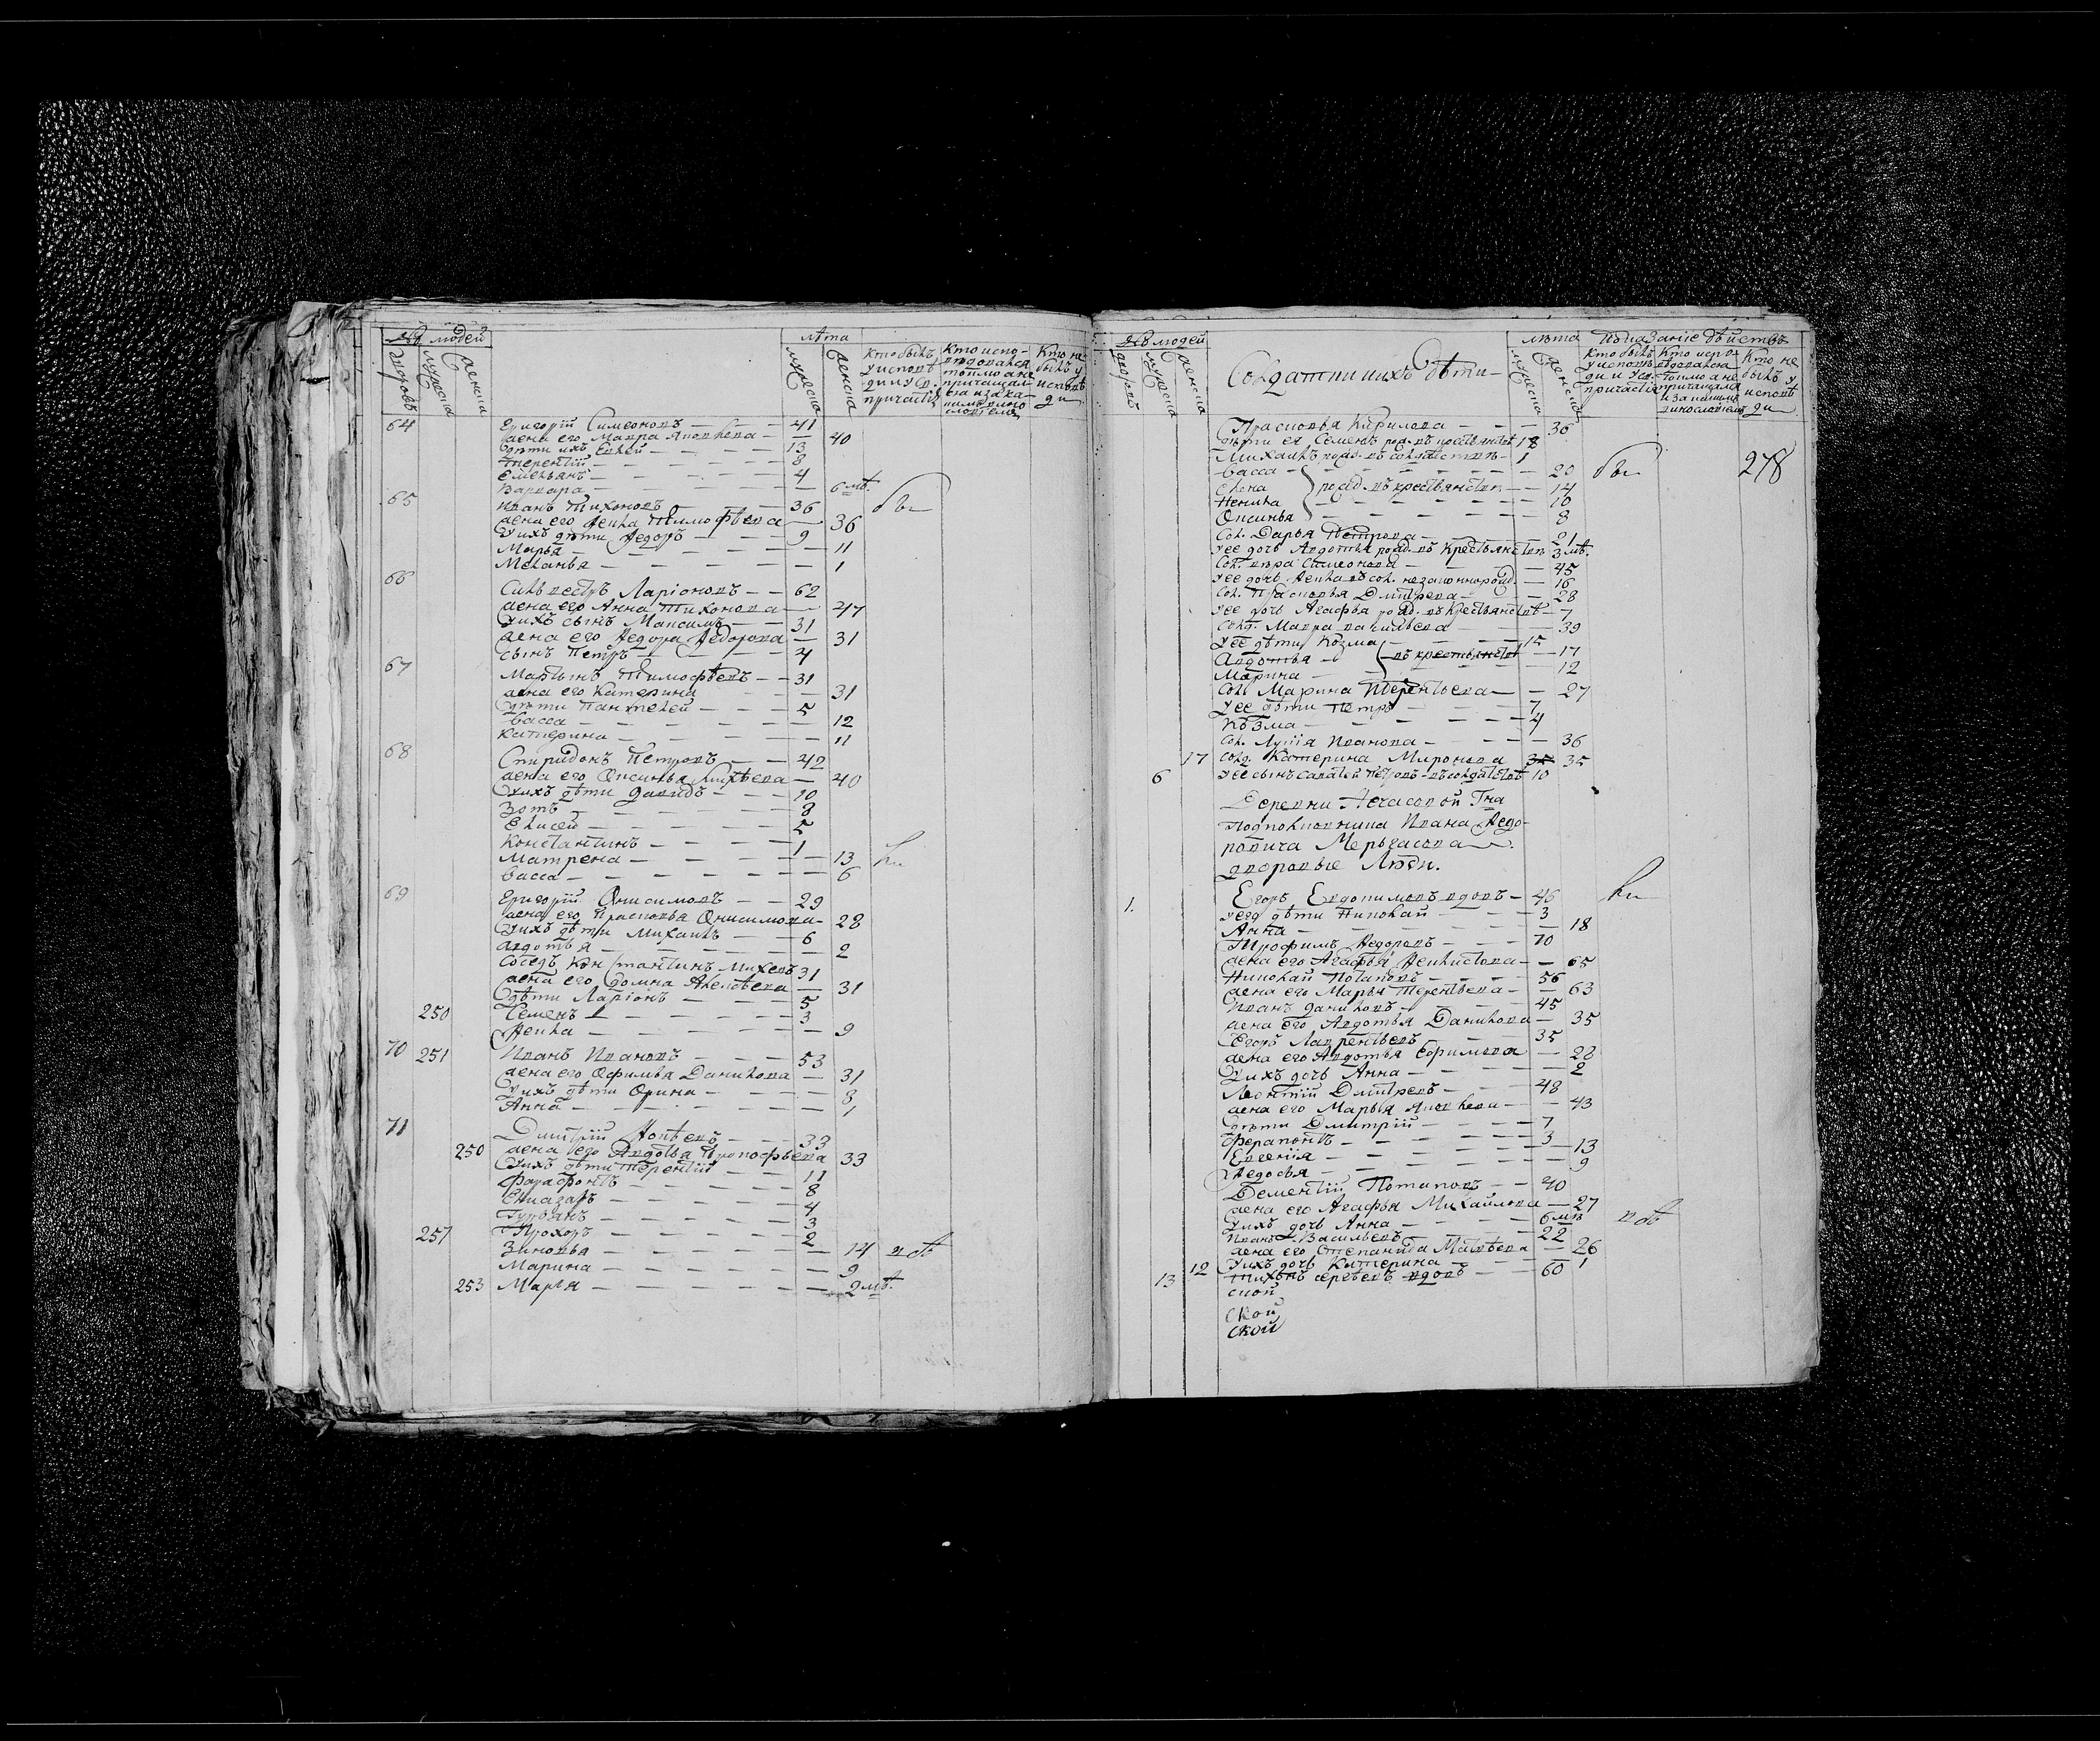 № людей
лѣта
дворовъ
мужеска
женска
мужеска
женска
кто былъ у исповѣди и у с. причастія
Кто исповѣдовался токмо а не причащался и за каким винословіем
Кто не былъ у исповѣди
64 Григорій Симеоновъ — 41
жена его Мавра Яковлева — 40
дѣти ихъ Елисей — 13
Терентій — 8
Емельянъ — 4
Варвара — 6 мѣ.
65 Иванъ Тихоновъ — 36
жена его Фекла Тимофѣева — 36
у ихъ дѣти Федоръ — 9
Марья — 11
Меланья — 1
66 Сильвестръ Ларіоновъ — 62
жена его Анна Тихонова — 47
у ихъ сынъ Максимъ — 31
жена его Федора Федорова — 31
сынъ Петръ — 4
67 Мартынъ Тимофѣевъ — 31
жена его Катерина — 31
дѣти Пантелей — 5
Васса — 12
Катерина — 11
68 Спиридонъ Петровъ — 42
жена его Оксинья Михѣева — 40
у ихъ дѣти Давидъ — 10
Зотъ — 8
Елисей — 5
Константинъ — 1
Матрена — 13
Васса — 6
69 Григорій Онисимовъ — 29
жена его Прасковья Онисимова — 28
у ихъ дѣти Михаилъ — 6
Авдотья — 2
Соседъ Константинъ Михеевъ 31
жена его Домна — 31
дѣти Ларіонъ — 5
250 Семенъ — 3
Фекла — 9
70 251 Иванъ Ивановъ — 53
жена его Офимья Данилова — 31
у ихъ дѣти Орина — 8
Анна — 1
71 Дмитрій — 33
250 жена его Авдотья Прокофьева 33
у ихъ дѣти Терентій — 11
Фарафонтъ — 8
Елиазаръ — 4
Гурьянъ — 3
257 Прохоръ — 2
Зиновья — 14
Марина — 9
253 Марья — 2 мѣ.
№ людей
дворовъ
мужеска
женска
Солдатки и ихъ дѣти
лѣта
мужеска
женска
Показаніе дѣйствъ
Кто былъ у исповѣди и у св. причастія
Кто исповѣдовался токмо а не причащался и за каким винословіем
Кто не былъ у исповѣди
278
Прасковья Кирилова — 36
дѣти ея Семенъ рожд. въ крестьянствѣ 18
Михаилъ рожд. въ солдатствѣ — 1
Васса — 20
Елена рожд. въ крестьянствѣ — 14
Ненила — 10
Оксинья — 8
Сол. Дарья Петрова — 21
у ее дочь Авдотья рожд. въ крестьянствѣ 3 мѣ.
Сол. Вѣра Симеонова — 45
у ее дочь Фекла въ сол. незаконнорожд. — 16
Сол. Прасковья Дмитрева — 28
у ее дочь Агафья рожд. въ крестьянствѣ — 7
Солд. Мавра Васильева — 39
у ее дѣти Козма — 15
Авдотья — въ крестьянствѣ — 17
Марина — 12
Сол. Марина Терентьева — 27
у ее дѣти Петръ — 7
Козма — 4
Сол. Лукія Иванова — 36
17 Солд. Катерина Миронова 35
6 у ее сынъ Саватей Петровъ въ солдатствѣ 10
Деревни Асчасовой Гна
Подполковника Ивана Федо-
ровича Мерьгасова
дворовые Люди.
1. Егоръ Евдокимовъ вдовъ — 46
у его дѣти Николай — 3
Анна — 18
Трофимъ Федоровъ — 70
жена его Агафья — 65
Николай Потаповъ — 56
жена его Марья Терентьева — 63
Иванъ Даниловъ — 45
жена его Авдотья Данилова — 35
Егоръ Лаврентьевъ — 35
жена его Авдотья Ефимова — 28
у ихъ дочь Анна — 2
Леонтій Дмитревъ — 48
жена его Марья Яковлева — 43
дѣти Дмитрій — 7
Ферапонтъ — 3
Евгенія — 13
Федосья — 9
Дементій Потаповъ — 40
жена его Агафья Михайлова — 27
у ихъ дочь Анна — 6 мѣ
Иванъ Васильевъ — 22
жена его Степанида Матвѣева — 26
12 у ихъ дочь Катерина — 1
13 Тихонъ Сергѣевъ вдовъ — 60
ской
ской
ской